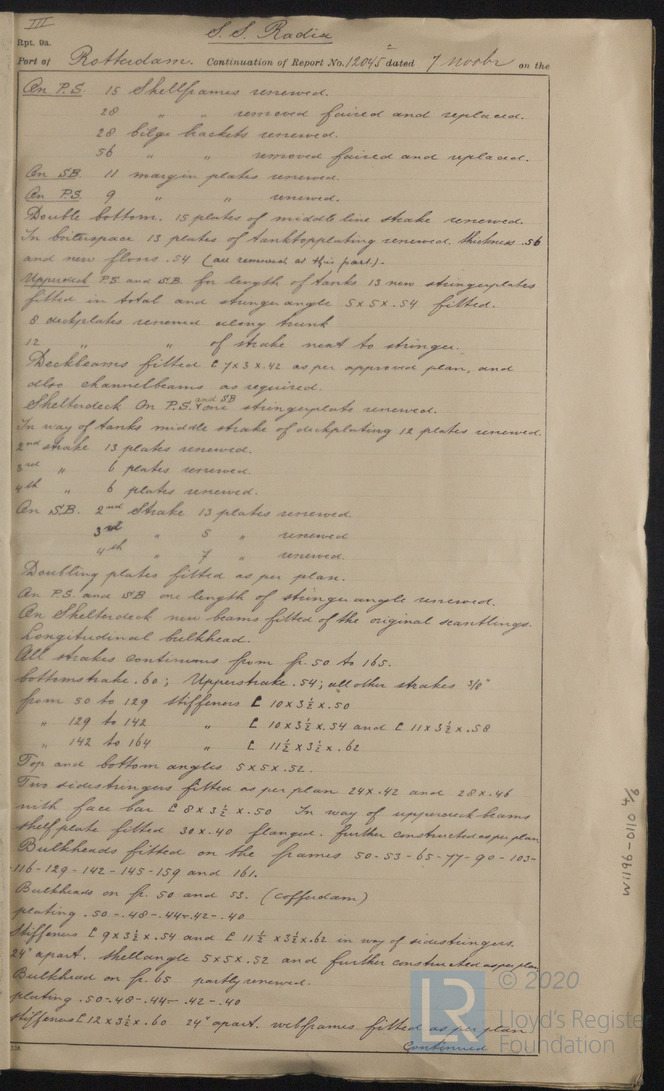 III
S. S. Radix
Rpt. 9a.
Port of Rotterdam. Continuation of Report No. 12045 dated 7 Novbr on the
On P.S. 15 Shellframes renewed.
28 " " removed faired and replaced.
28 bilge brackets renewed.
56 " " removed faired and replaced.
On SB. 11 margin plates renewed.
On P.S. 9 " " renewed.
Double bottom. 15 plates of middle line strake renewed.
In boilerspace 13 plates of tanktopplating renewed. thickness .56
and new floors .54 (all removed at this part).
Upperdeck P.S. and S.B. for length of tanks 13 new stringerplates
fitted in total and stringerangle 5x5x.54 fitted.
8 deckplates renewed along trunk
12 " " of strake next to stringer.
Deckbeams fitted [ 7x3x.42 as per approved plan, and
also channelbeams as required.
Shelterdeck On P.S. and SB one stringerplate renewed.
In way of tanks middle strake of deckplating 12 plates renewed.
2nd strake 13 plates renewed.
3rd " 6 plates renewed.
4th " 6 plates renewed.
On S.B. 2nd Strake 13 plates renewed
3rd " 5 " renewed
4th " 7 " renewed.
Doubling plates fitted as per plan.
On P.S. and S.B one length of stringerangle renewed.
On Shelterdeck new beams fitted of the original scantlings.
Longitudinal bulkhead.
All strakes continuous from fr. 50 to 165.
bottomstrake .60; Upperstrake .54; all other strakes 3/8"
from 50 to 129 stiffeners [ 10x3½x.50
" 129 to 142 " [ 10x3½x.54 and [ 11x3½x.58
" 142 to 164 " [ 11½x3½x.62
Top and bottom angles 5x5x.52.
Two sidestringers fitted as per plan 24x.42 and 28x.46
with face bar [ 8x3½x.50 In way of upperdeck beams
shelfplate fitted 30x.40 flanged. further constructed as per plan
Bulkheads fitted on the frames 50-53-65-77-90-103-
116-129-142-145-159 and 161.
Bulkheads on fr. 50 and 53. (cofferdam)
plating .50-.48-.44-.42-.40
Stiffeners [ 9x3½x.54 and [ 11½x3½x.62 in way of sidestringers.
24" apart. shellangle 5x5x.52 and further constructed as per plan
Bulkhead on fr. 65 partly renewed.
plating .50-.48-.44-.42-.40
stiffeners [ 12x3½x.60 24" apart. webframes fitted as per plan
Continued
W1196-0110 4/8
LR
© 2020
Lloyd's Register
Foundation